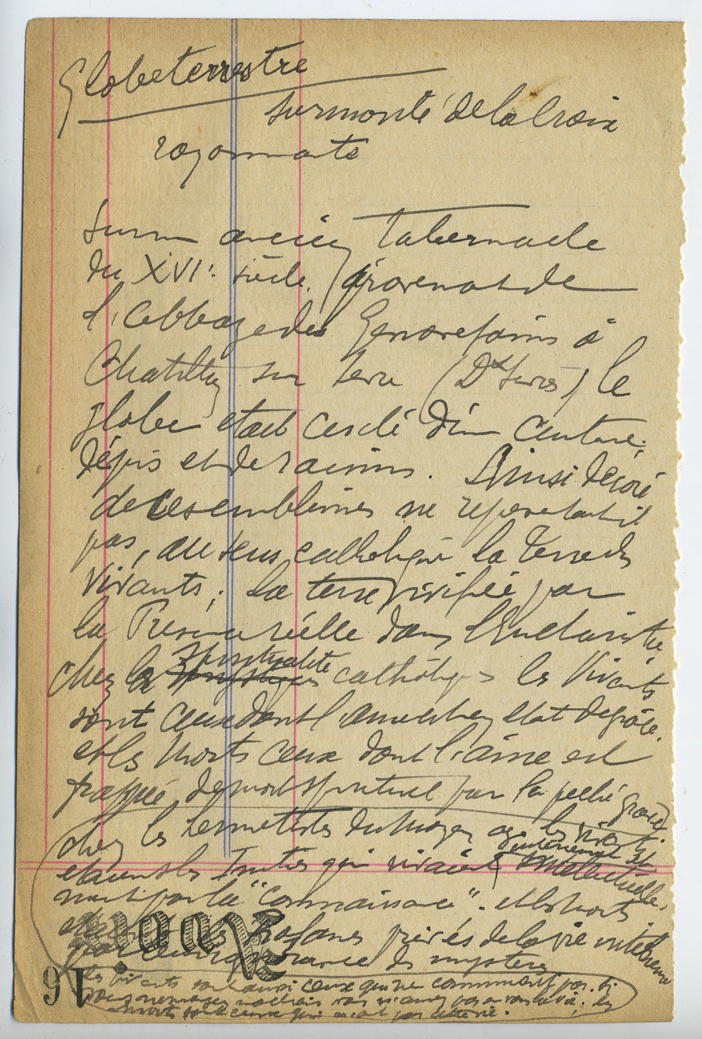 Globe terrestre
surmonté de la Croix
rayonnante
Sur un ancien tabernacle
du XVIe siècle, provenant de
l'abbaye des Genovefains à
Chatillon sur Sevre (Dx Sevres) le
globe etait cerclé d'une ceinture
d'épis et de raisins. Ainsi décoré
de ces emblèmes ne representait il
pas, au sens catholique la Terre des
Vivants ; la terre vivifiée par
la Presence réelle dans l'Eucharistie
Chez la spiritualité catholique les Vivants
sont ceux dont l'ame est en etat de grâce.
et les Morts ceux dont l'âme est
frappée de mort spirituelle par le péché grave
chez les hermetistes du moyen age les vivants
etaient les Initiés qui vivaient intellectuelle
ment par la "connaissance". et les morts
profanes privés de la vie
par des mystères
les vivants sont aussi ceux qui ne communient pas. Si
vous ne mangez vous n'aurez pas en vous la vie. les
morts sont ceux qui
Août
16